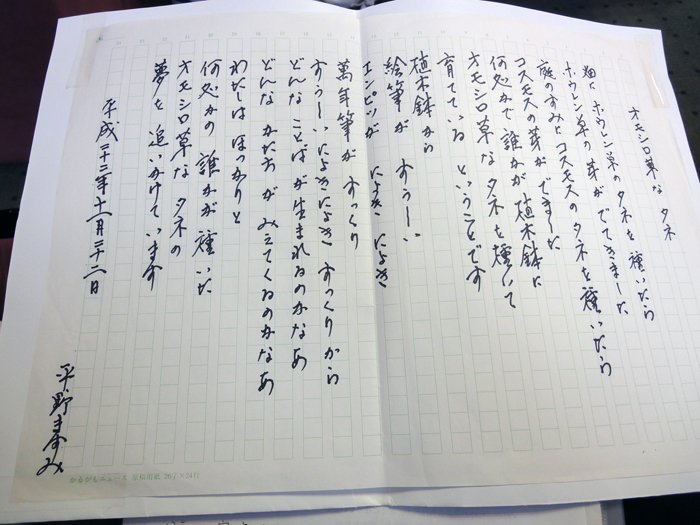 オモシロ草な タネ
畑に ホウレン草のタネを 種いたら
ホウレン草の芽が でてきました
庭のすみに コスモスのタネを 種いたら
コスモスの芽が でました
何処かで 誰かが 植木鉢に
オモシロ草な タネを 種いて
育てている ということです
植木鉢から
絵筆が すうーい
エンピツが にょき にょき
萬年筆が すっくり
すうーい にょきにょき すっくりから
どんな ことばが 生まれるのかなあ
どんな かたちが みえてくるのかなあ
わたしは ほっかりと
何処かの 誰かが 種いた
オモシロ草な タネの
夢を 追いかけています
平成二十二年十一月二十二日
平野ますみ
かるがもニュース 原稿用紙 20字×24行